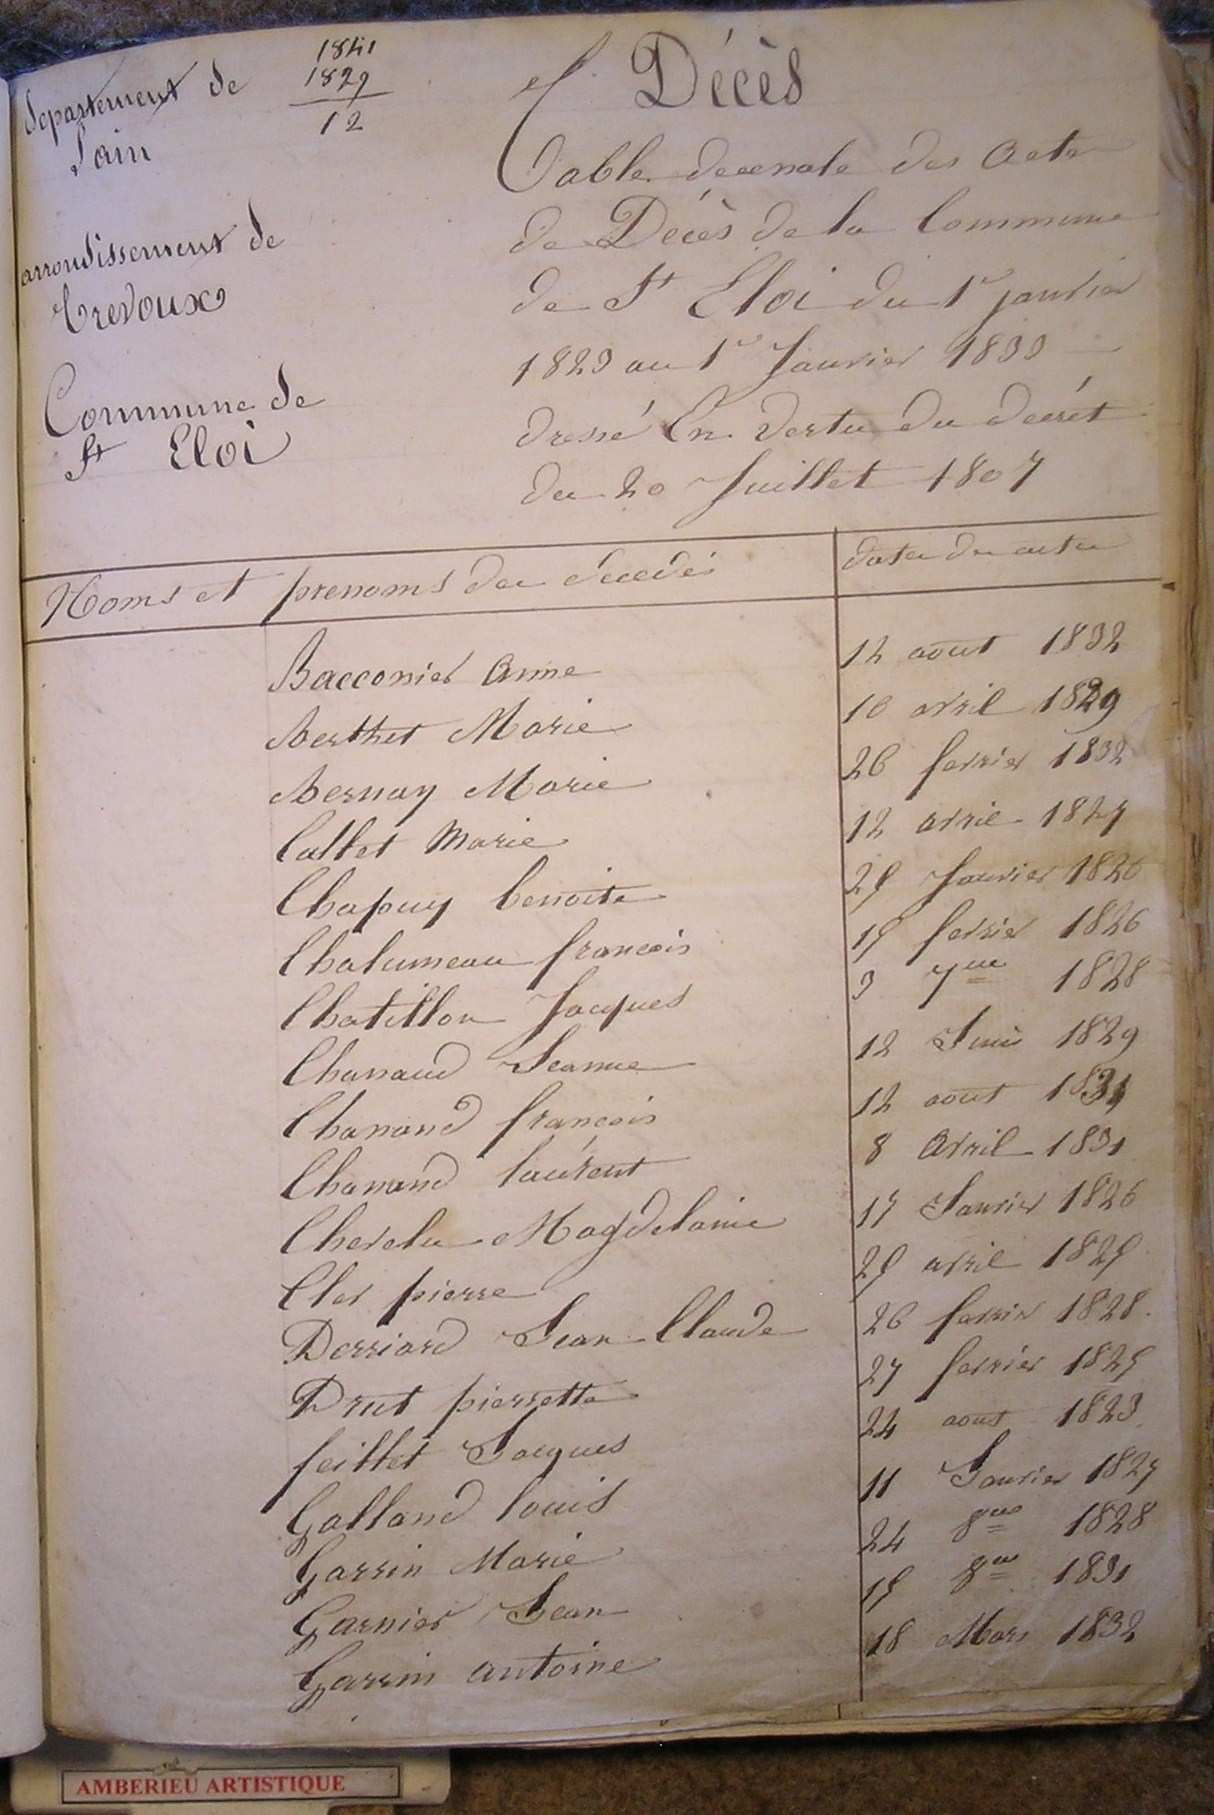 departement de
l'ain
1841
1829
12
arrondissement de
Trevoux
Commune de
St Eloi
Décès
Table decennale des Actes
de Décès de la Commune
de St Eloi du 1r janvier
1823 au 1r Janvier 1833
dressé En Vertu du decrét
du 20 Juillet 1807
Noms et prenoms des decedés date des actes
Bacconier Anne 12 aout 1832
Berthet Marie 10 avril 1829
Bernay Marie 26 fevrier 1832
Callet Marie 12 avril 1827
Chapuy benoite 25 Janvier 1826
Chalumeau francois 15 fevrier 1826
Chatillon Jacques 3 7bre 1828
Chanaud Jeanne 12 Juin 1829
Chanand francois 12 aout 1831
Chanand laurent 8 Avril 1831
Chevelu Magdelaine 17 Janvier 1826
Cler pierre 25 avril 1825
Derriard Jean Claude 26 fevrier 1828
Drut pierrette 27 fevrier 1825
feillet Jacques 24 aout 1823
Galland louis 11 Janvier 1827
Garrin Marie 24 8bre 1828
Garnier Jean 15 8bre 1831
Garrin antoine 18 Mars 1832
AMBERIEU ARTISTIQUE